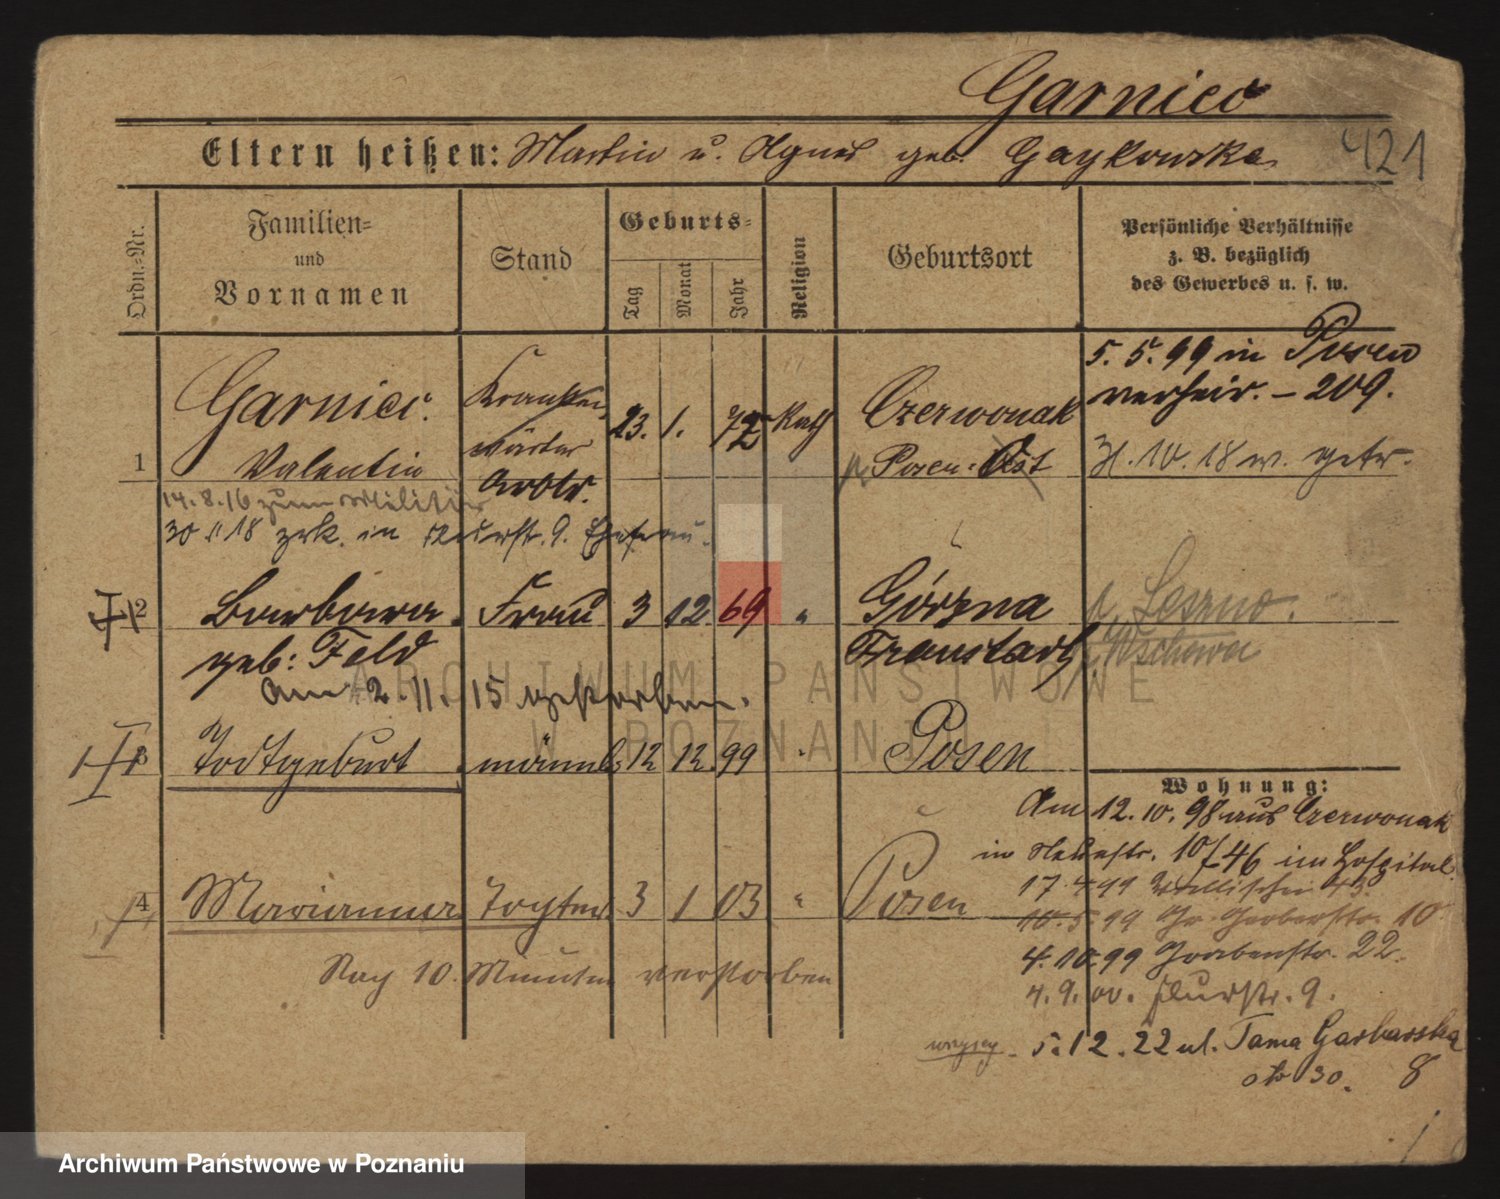 Garniec
Eltern heißen: Martin u. Agnes geb. Gaykowska
421
Ordn.-Nr.
Familien-
und
Vornamen
Stand
Geburts-
Tag
Monat
Jahr
Religion
Geburtsort
Persönliche Verhältnisse
z. B. bezüglich
des Gewerbes u. s. w.
1
Garniec.
Valentin
Kranken-
wärter
Arbtr.
23. 1. 72
Kath
Czerwonak
Posen-Ost
5. 5. 99 in Posen
verheir. - 209.
14. 8. 16 zum Militär
30 11 18 zrk. in Flurstr. 9. Ehefrau.
2
Barbara
geb: Feld
Frau
3 12. 69 "
Górzna
Fraustadt
p. Leszno.
Wschowa
am 2. 11. 15 gestorben.
3
Todtgeburt
männl. 12 12. 99 "
Posen
4
Marianna
Tochter 3 1 03 "
Posen
Nach 10. Minuten verstorben
Wohnung:
Am 12. 10. 98 aus Czerwonak
in Neuestr. 10/46 im Hospital.
17. 4 99 Wallischei 43
10. 5. 99 Gr. Gerberstr. 10
4. 10. 99 Grabenstr. 22.
4. 9. 00. Flurstr. 9.
5. 12. 22 ul. Tama Garbarska
30. 8
ARCHIWUM PAŃSTWOWE
W POZNANIU
Archiwum Państwowe w Poznaniu